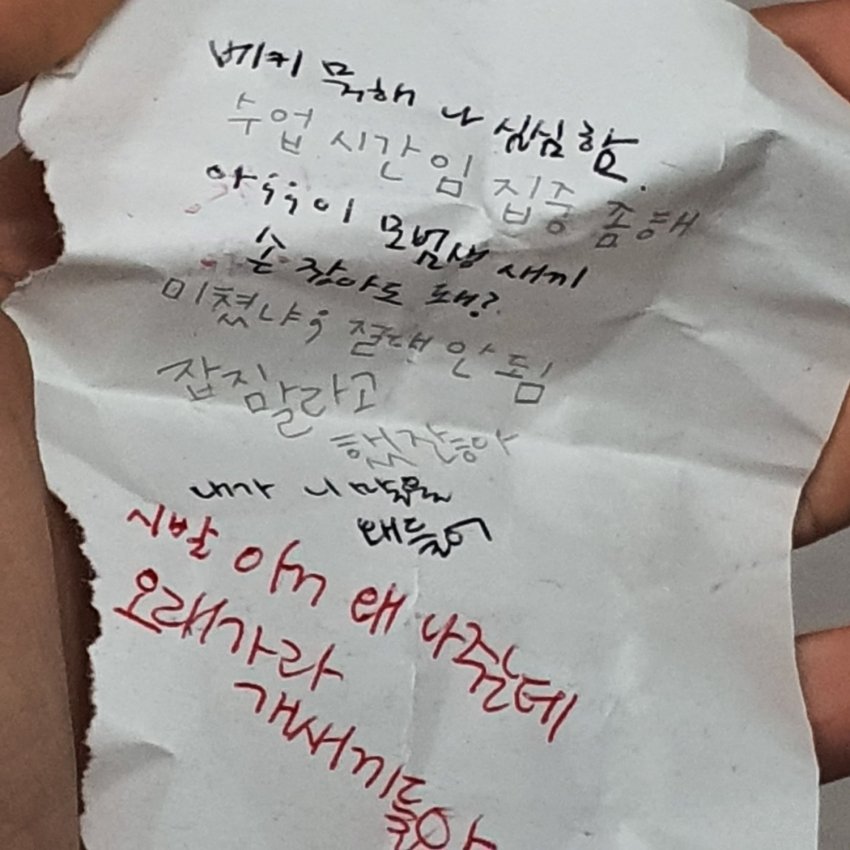 베키 뭑해 나 심심함.
수업 시간임 집중 좀해
아;;이 모범생 새끼
손 잡아도 돼?
미쳤냐; 절대 안 됨
잡지말라고
했잖아
내가 니 마음을
왜들어
시발 왜 나줬는데
오래가라
개새끼들아